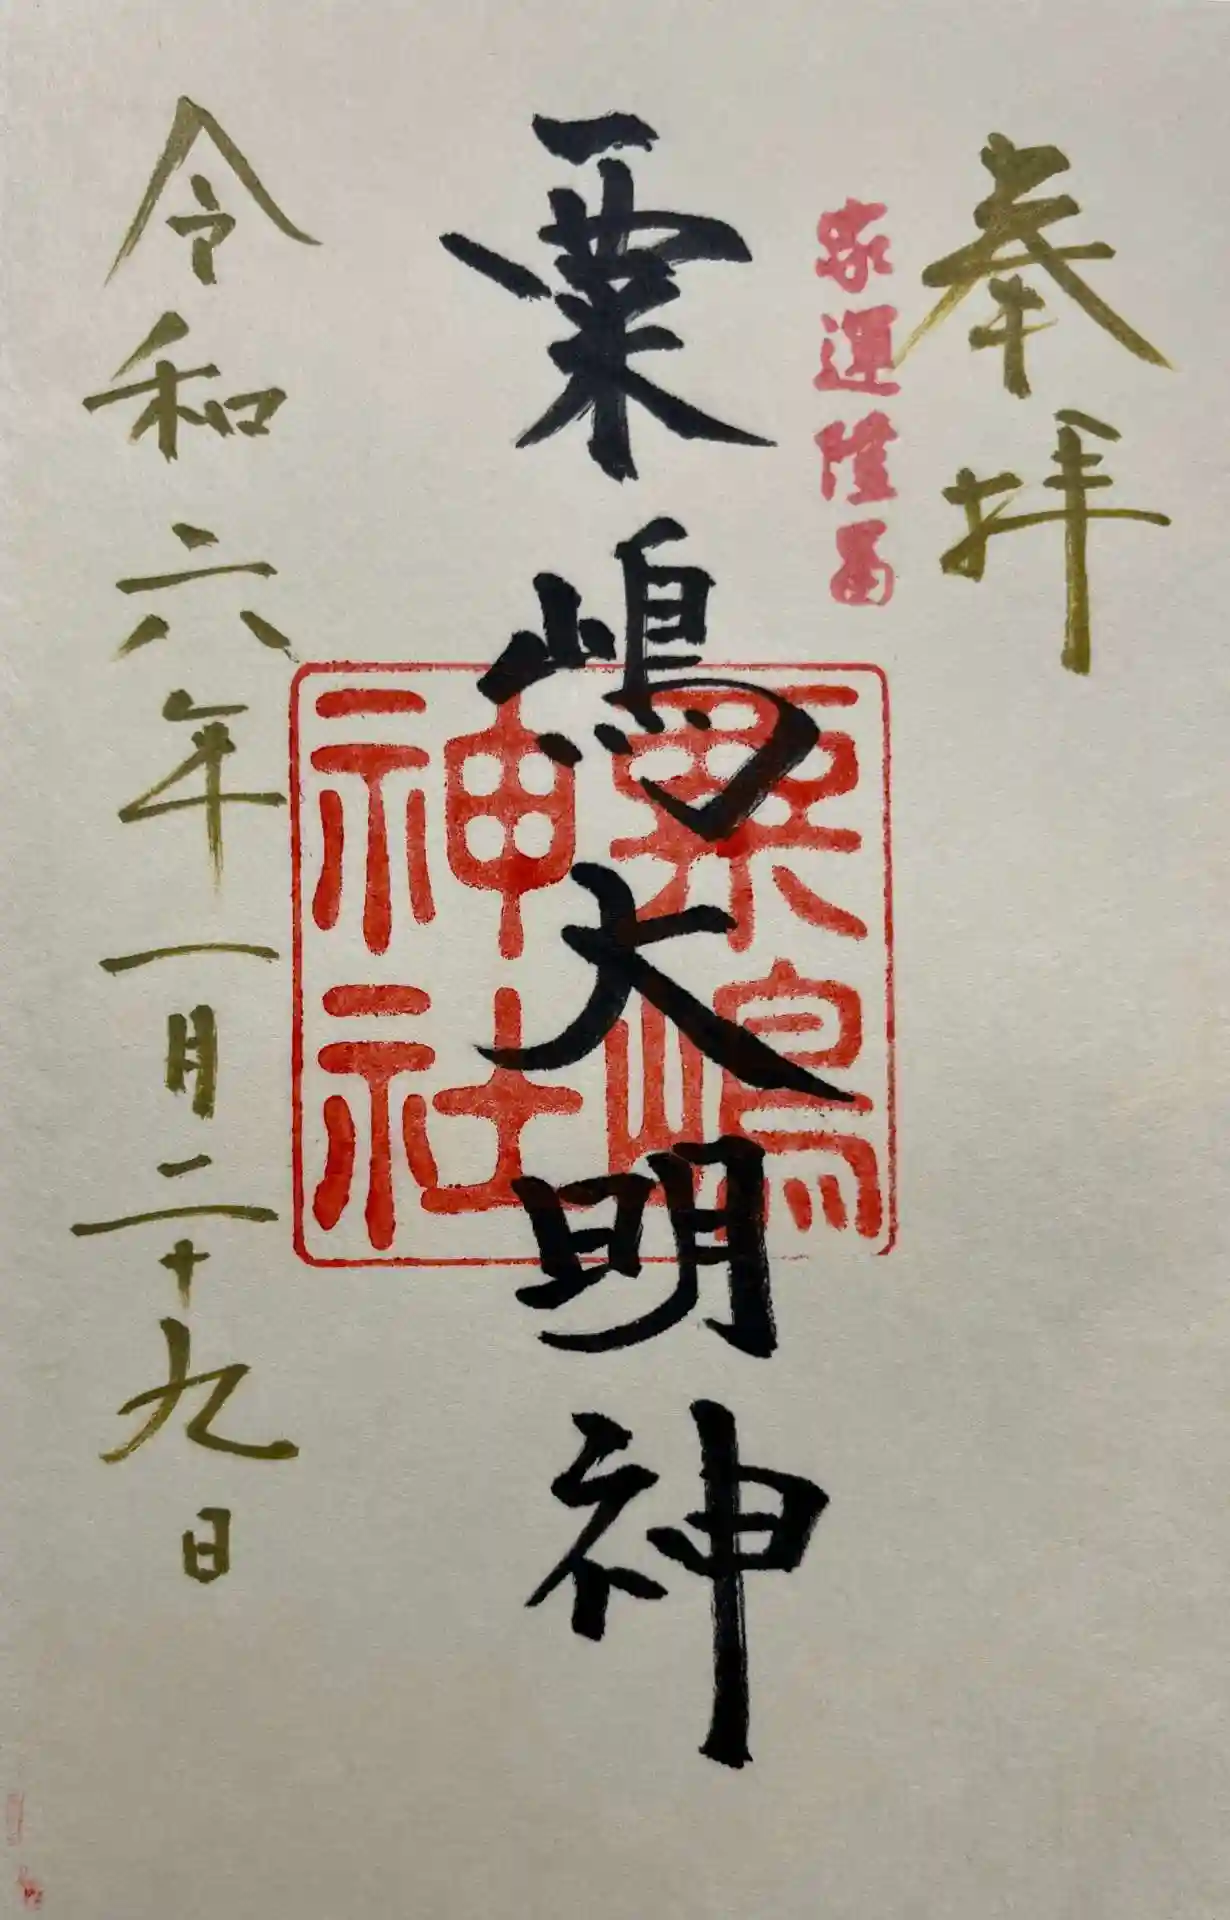 奉拝
家運隆昌
粟嶋大明神
粟嶋
神社
令和六年一月二十九日